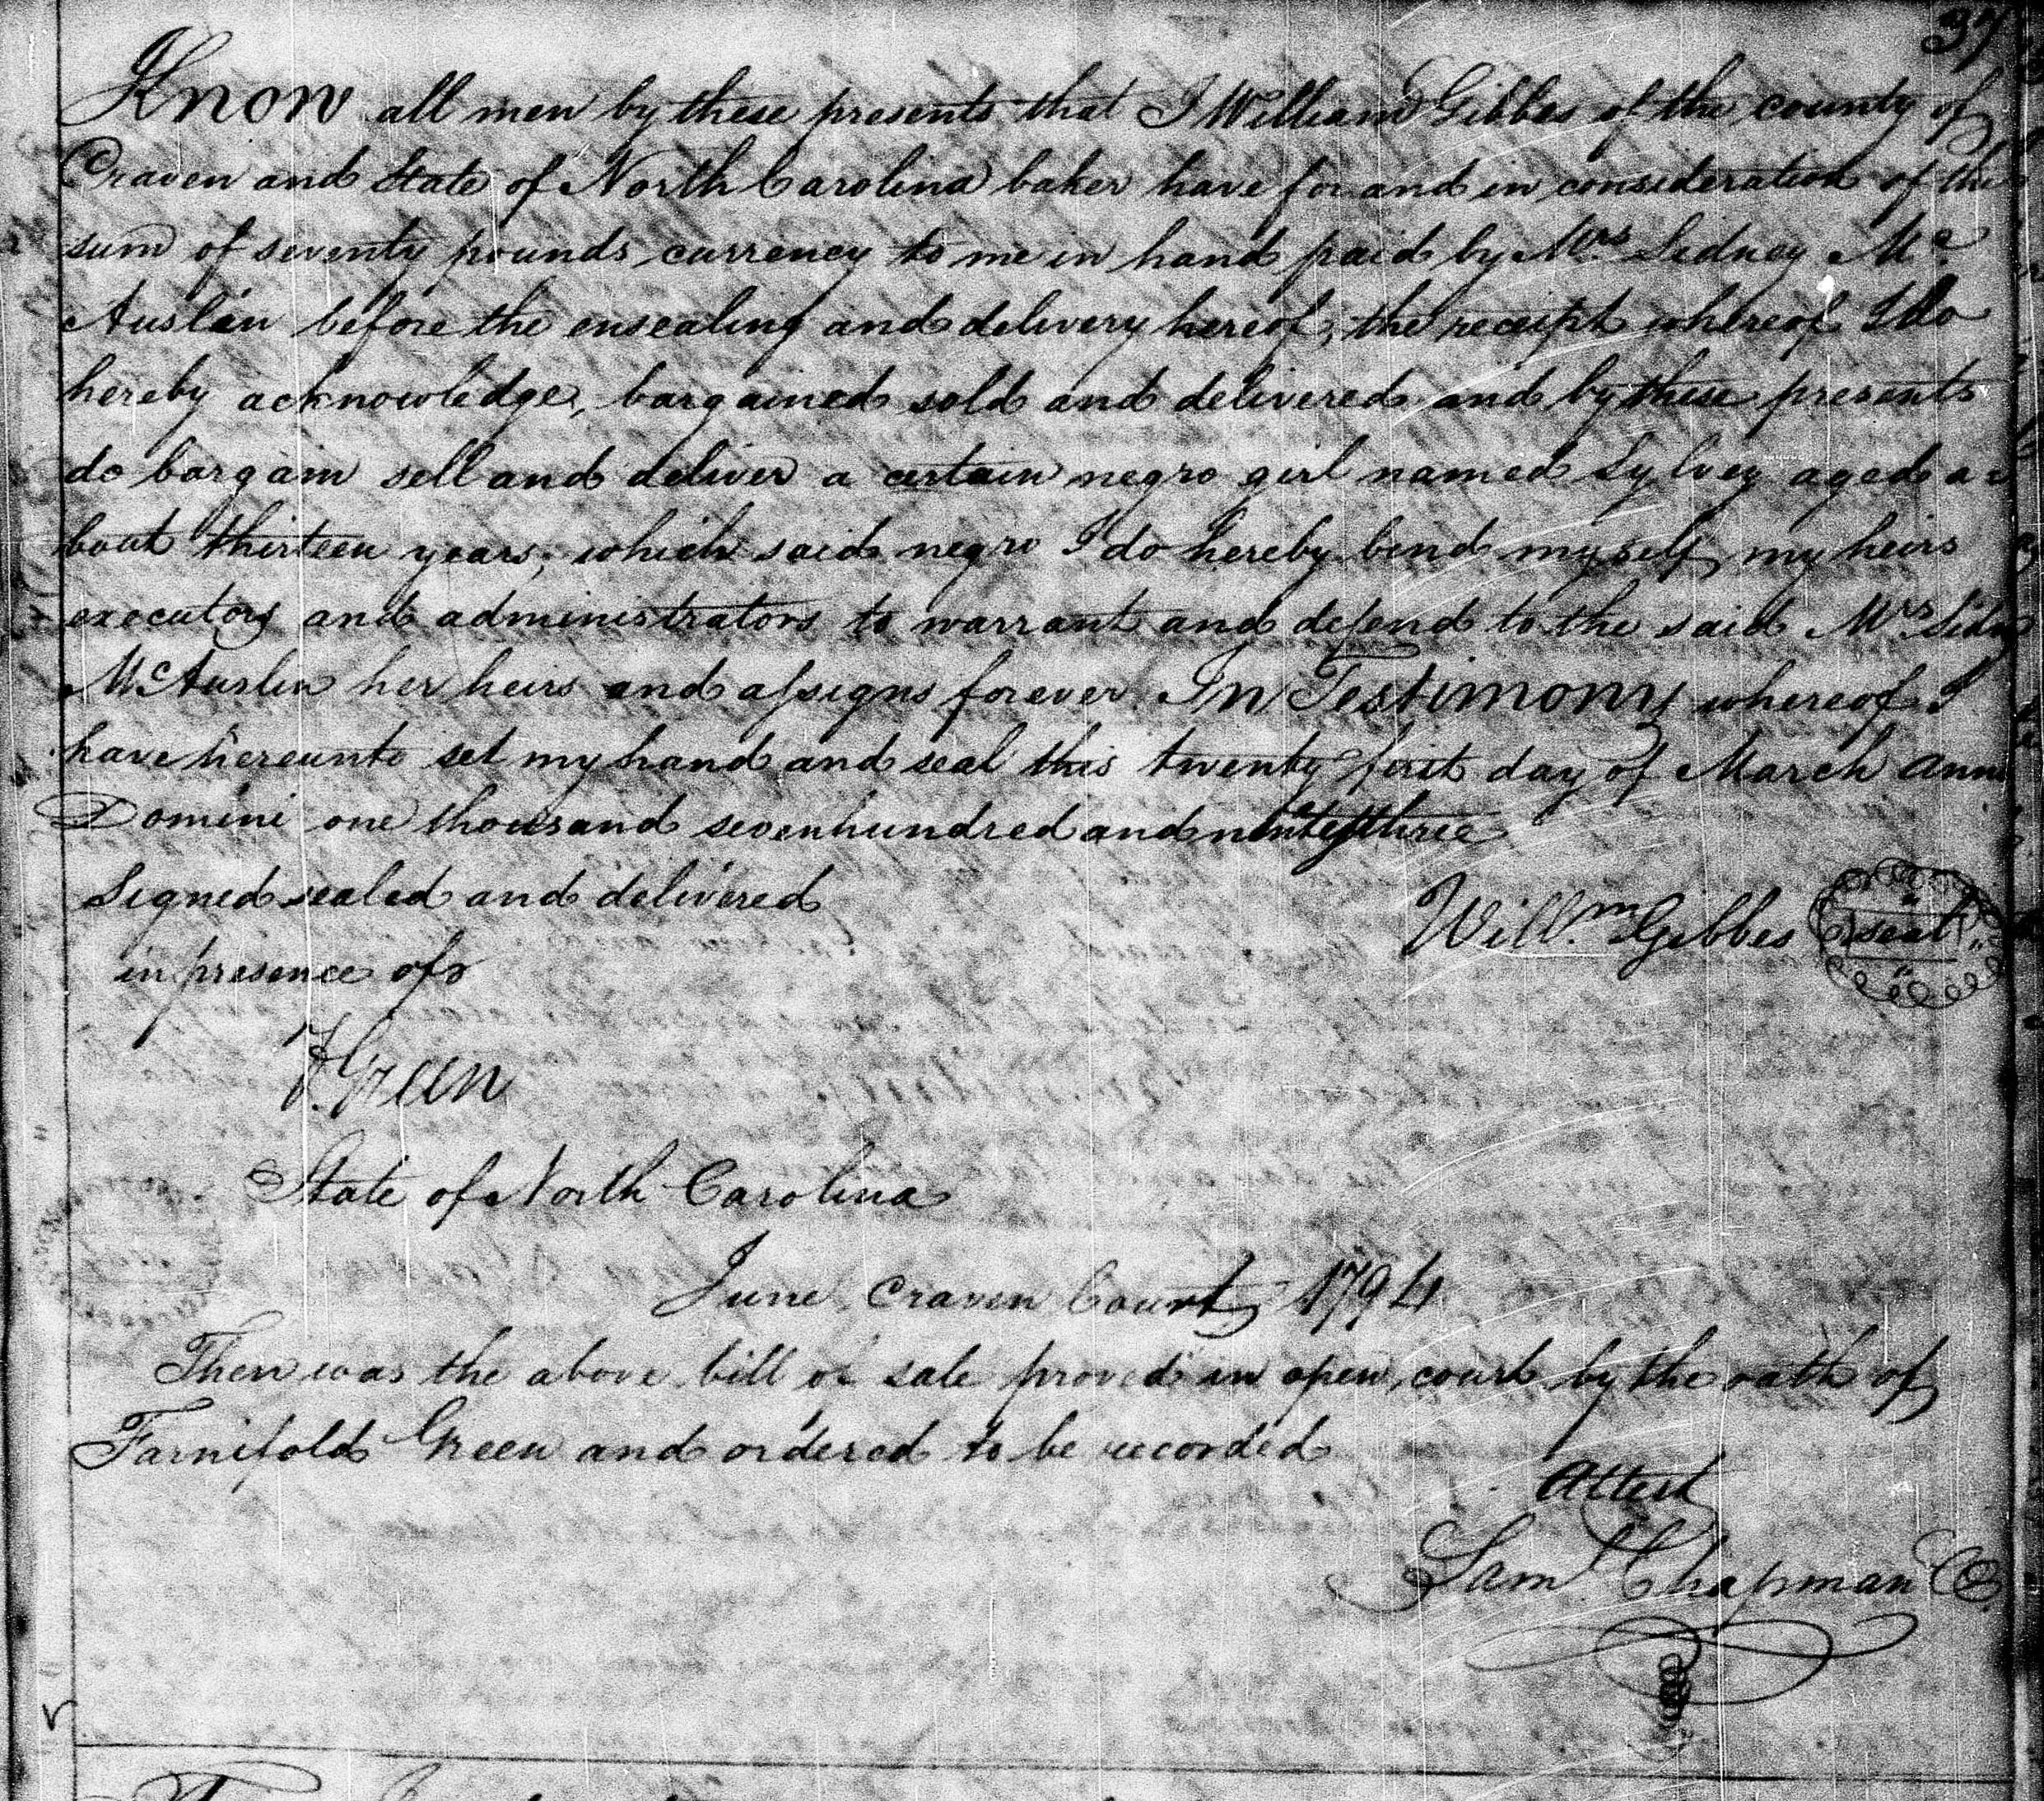 37
Know all men by these presents that I William Gibbes of the county of
Craven and State of North Carolina baker have for and in consideration of the
sum of seventy pounds currency to me in hand paid by Mrs Sidney Mc
Auslin before the ensealing and delivery hereof, the receipt whereof I do
hereby acknowledge, bargained sold and delivered and by these presents
do bargain sell and deliver a certain negro girl named Sylvey aged a=
bout thirteen years; which said negro I do hereby bind myself my heirs
executors and administrators to warrant and defend to the said Mrs Sidney
McAuslin her heirs and assigns forever. In Testimony whereof I
have hereunto set my hand and seal this twenty first day of March anno
Domini one thousand seven hundred and ninety three
Signed sealed and delivered
in presence of
Willm Gibbes seal
F. Green
State of North Carolina
June Craven Court 1794
Then was the above bill of sale proved in open court by the oath of
Farnifold Green and ordered to be recorded
Attest
Saml Chapman C.